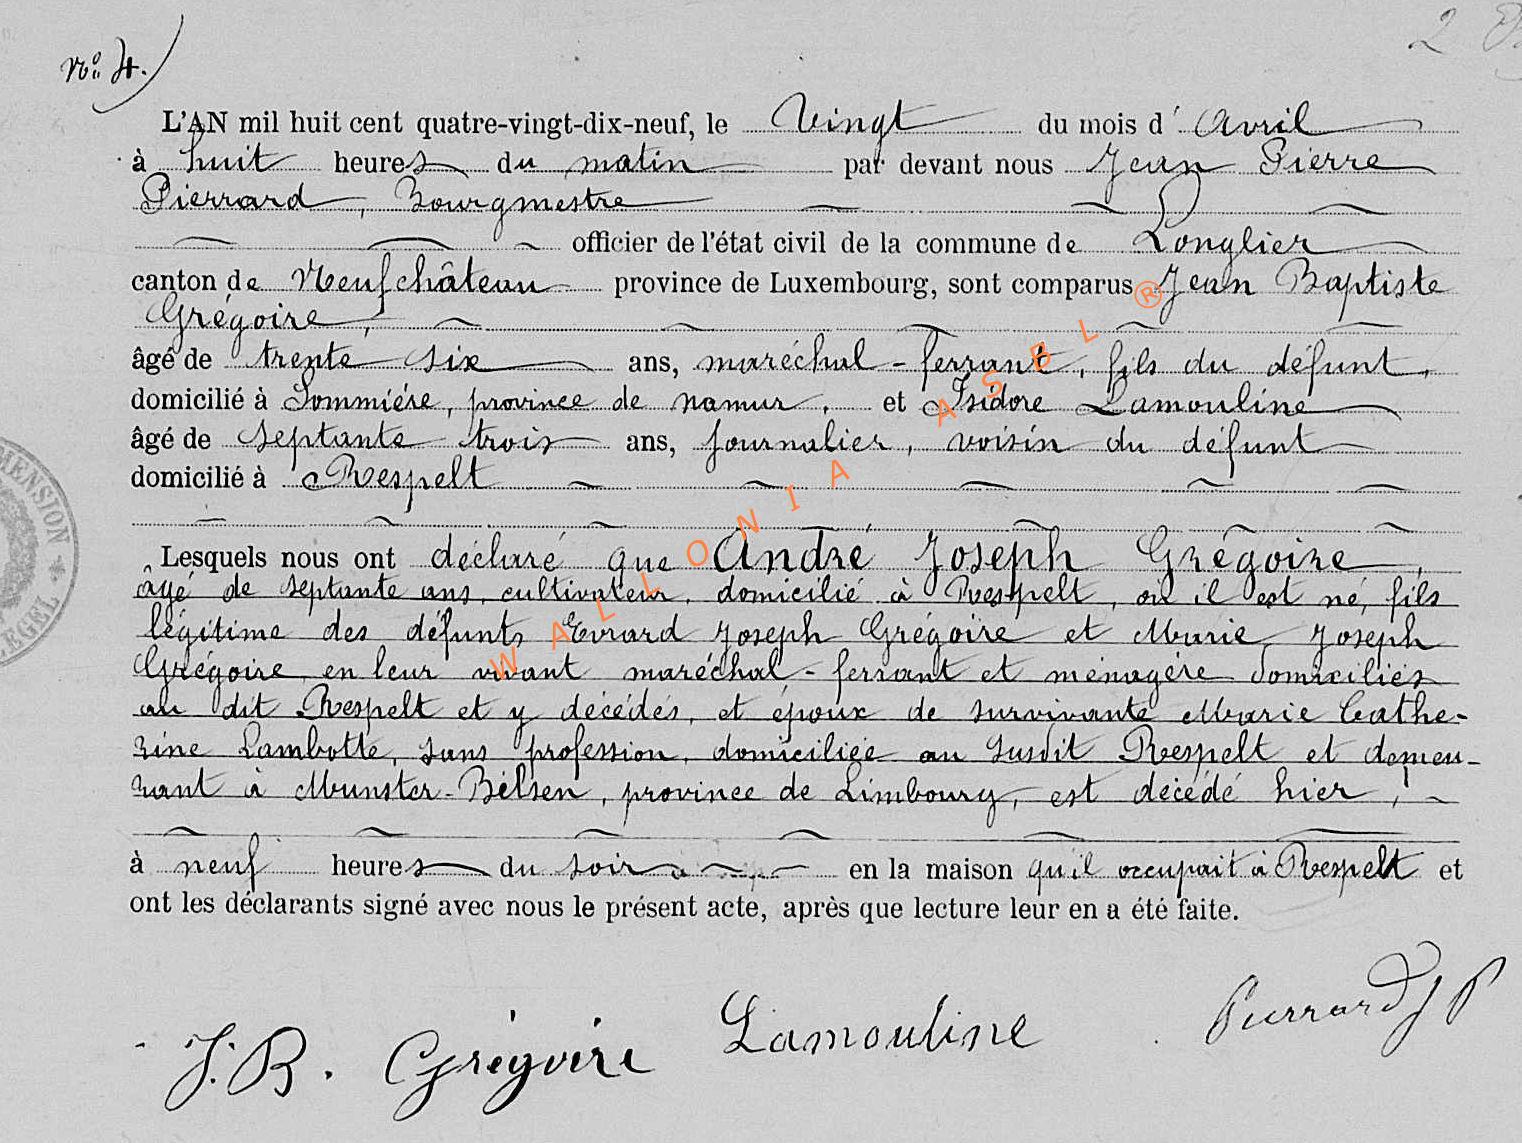 2
N° 4.)
L'AN mil huit cent quatre-vingt-dix-neuf, le Vingt du mois d' Avril
à huit heures du matin par devant nous Jean Pierre
Pierrard, Bourgmestre
officier de l'état civil de la commune de Longlier
canton de Neufchâteau province de Luxembourg, sont comparus Jean Baptiste
Grégoire,
âgé de trente six ans, maréchal-ferrant, fils du défunt,
domicilié à Sommière, province de Namur, et Isidore Lamouline
âgé de septante trois ans, journalier, voisin du défunt
domicilié à Respelt
Lesquels nous ont déclaré que André Joseph Grégoire,
âgé de septante ans, cultivateur, domicilié à Respelt, où il est né, fils
légitime des défunts Evrard Joseph Grégoire et Marie Joseph
Grégoire, en leur vivant maréchal-ferrant et ménagère domiciliés
au dit Respelt et y décédés, et époux de survivante Marie Cathe-
rine Lambotte, sans profession, domiciliée au susdit Respelt et demeu-
rant à Munster-Bilsen, province de Limbourg, est décédé hier,
à neuf heures du soir en la maison qu'il occupait à Respelt et
ont les déclarants signé avec nous le présent acte, après que lecture leur en a été faite.
J. B. Grégoire Lamouline Pierrard J P
MENSION
EGEL
WALLONIA ASBL ®